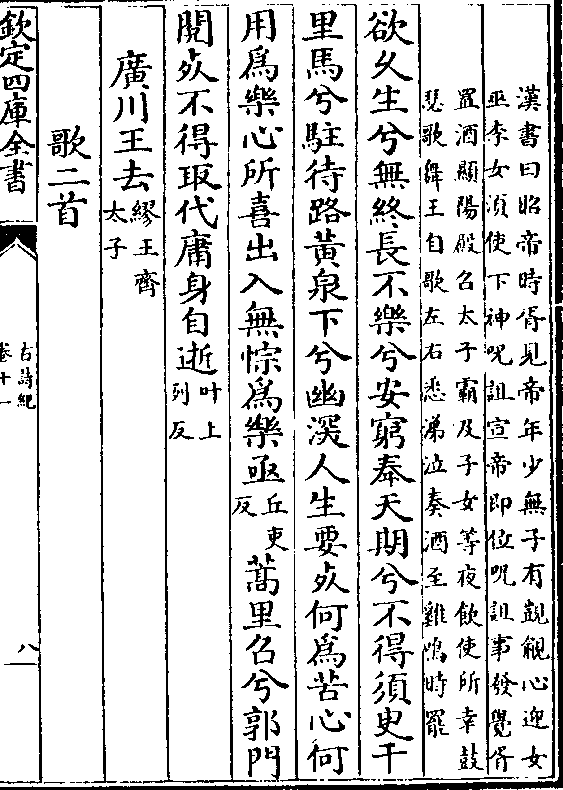 漢書曰昭帝時胥見帝年少無子有覬覦心迎女
巫李女須使下神呪詛宣帝即位呪詛事發覺胥
置酒顯陽殿召太子霸及子女等夜飲使所幸鼓
瑟歌舞王自歌左右悉涕泣奏酒至雞鳴時罷
欲久生兮無終長不樂兮安窮奉天期兮不得須臾千
里馬兮駐待路黃泉下兮幽深人生要死何爲苦心何
用爲樂心所喜出入無悰爲樂亟丘吏反蒿里召兮郭門
閱死不得取代庸身自逝叶上列反
廣川王去繆王齊太子
歌二首
欽定四庫全書
古詩紀
卷十一
八